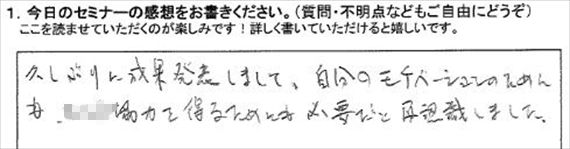 1. 今日のセミナーの感想をお書きください。（質問・不明点などもご自由にどうぞ）
ここを読ませていただくのが楽しみです！詳しく書いていただけると嬉しいです。
久しぶりに成果発表しまして、自分のモチベーションのためん
も、協力を得るためにも必要だと再認識しました。